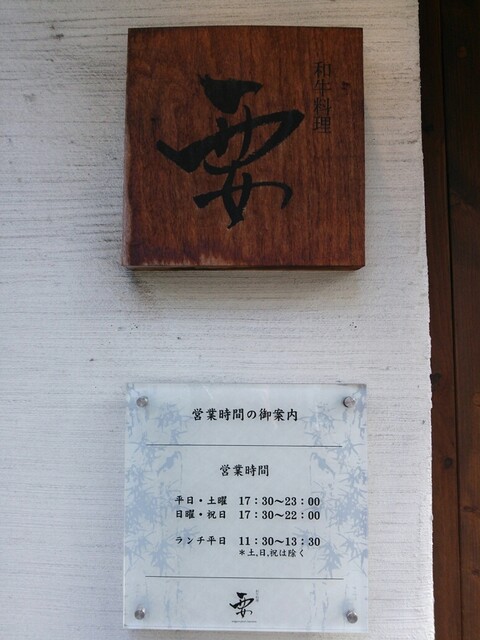 和牛料理
要
営業時間の御案内
営業時間
平日・土曜 17:30〜23:00
日曜・祝日 17:30〜22:00
ランチ平日 11:30〜13:30
＊土,日,祝は除く
要